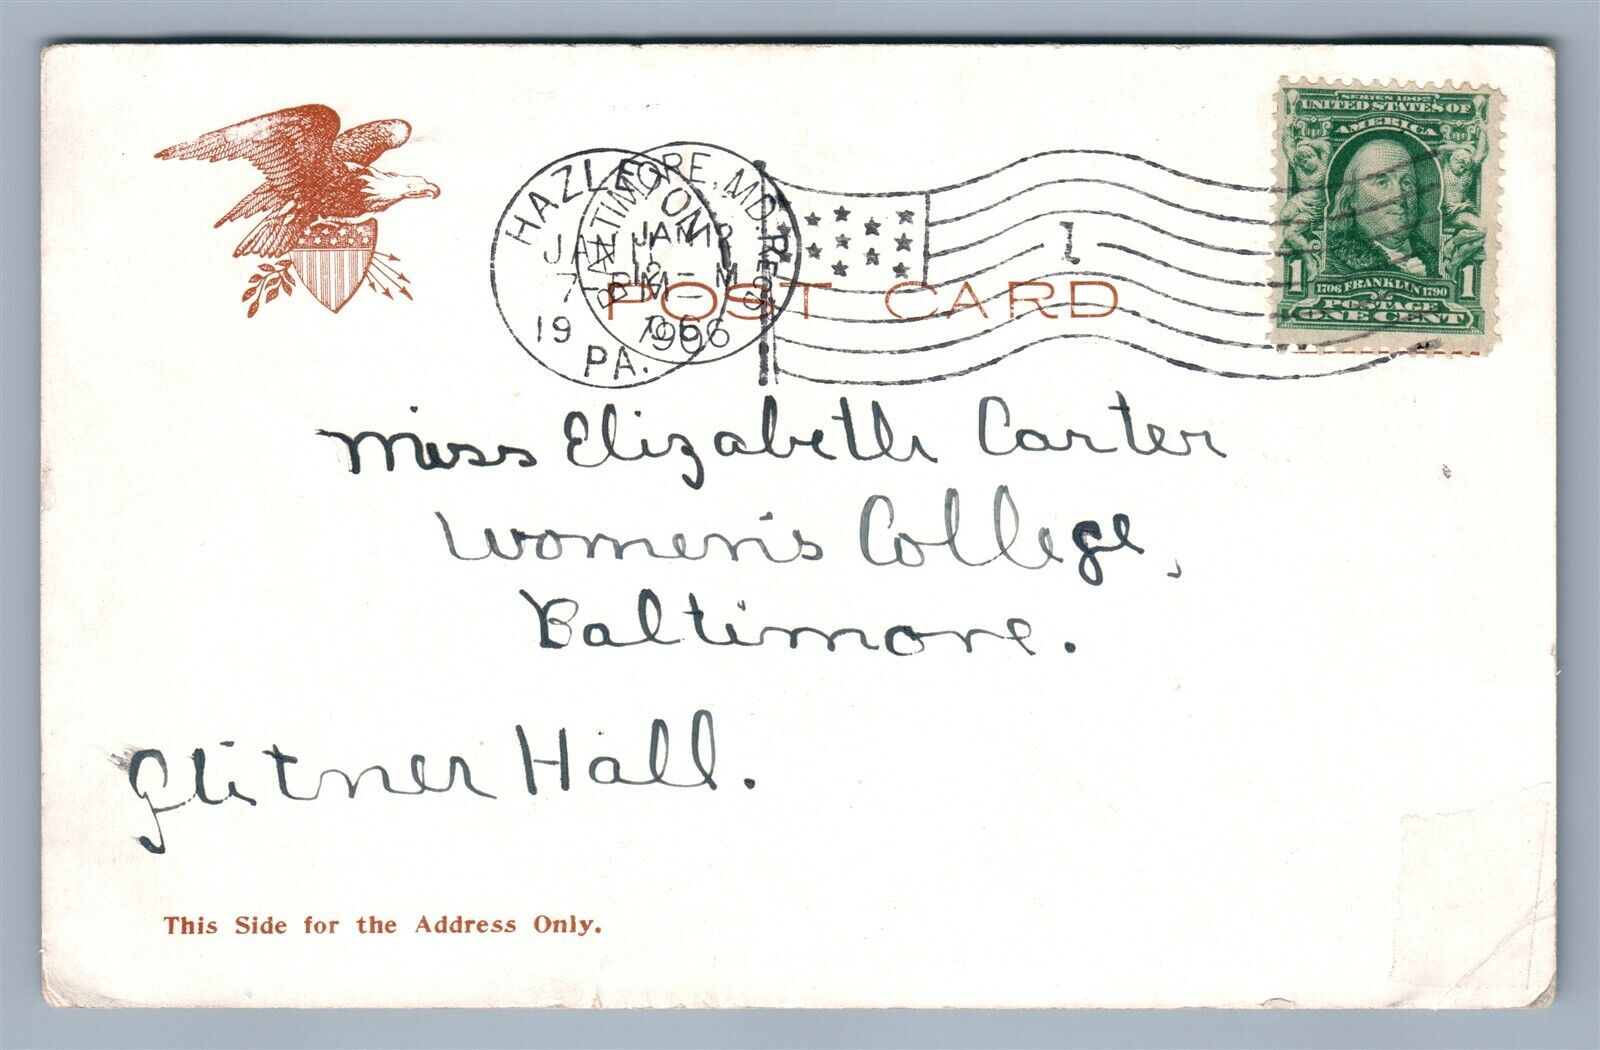 SERIES 1902
UNITED STATES OF
AMERICA
HAZLETON
JAN 11
7 PM
1906
PA.
BALTIMORE, MD. REC'D
JAN 12
M
1906
1
POST CARD
1 1706 FRANKLIN 1790 1
POSTAGE
ONE CENT
Miss Elizabeth Carter
Women's College,
Baltimore.
Glitner Hall.
This Side for the Address Only.